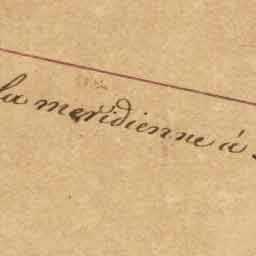 la meridienne à